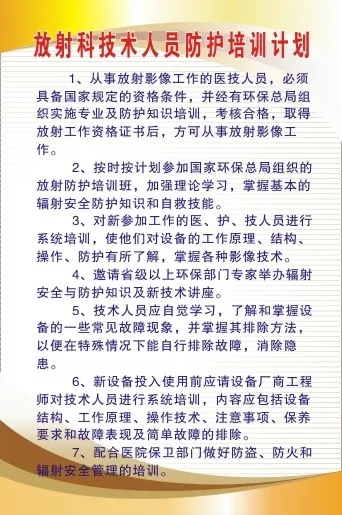 放射科技术人员防护培训计划
1、从事放射影像工作的医技人员，必须
具备国家规定的资格条件，并经有环保总局组
织实施专业及防护知识培训，考核合格，取得
放射工作资格证书后，方可从事放射影像工
作。
2、按时按计划参加国家环保总局组织的
放射防护培训班，加强理论学习，掌握基本的
辐射安全防护知识和自救技能。
3、对新参加工作的医、护、技人员进行
系统培训，使他们对设备的工作原理、结构、
操作、防护有所了解，掌握各种影像技术。
4、邀请省级以上环保部门专家举办辐射
安全与防护知识及新技术讲座。
5、技术人员应自觉学习，了解和掌握设
备的一些常见故障现象，并掌握其排除方法，
以便在特殊情况下能自行排除故障，消除隐
患。
6、新设备投入使用前应请设备厂商工程
师对技术人员进行系统培训，内容应包括设备
结构、工作原理、操作技术、注意事项、保养
要求和故障表现及简单故障的排除。
7、配合医院保卫部门做好防盗、防火和
辐射安全管理的培训。